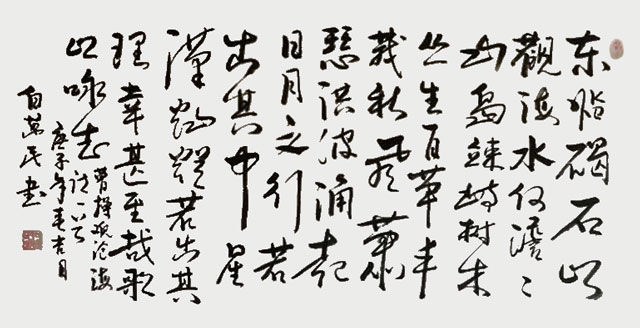 东临碣石以
觀海水何澹〻
山岛竦峙树木
丛生百草丰
茂秋風萧
瑟洪波涌起
日月之行若
出其中星
漢燦爛若出其
裡幸甚至哉歌
以咏志
曹操观沧海
诗一首
庚子年春吉月
白萬民书